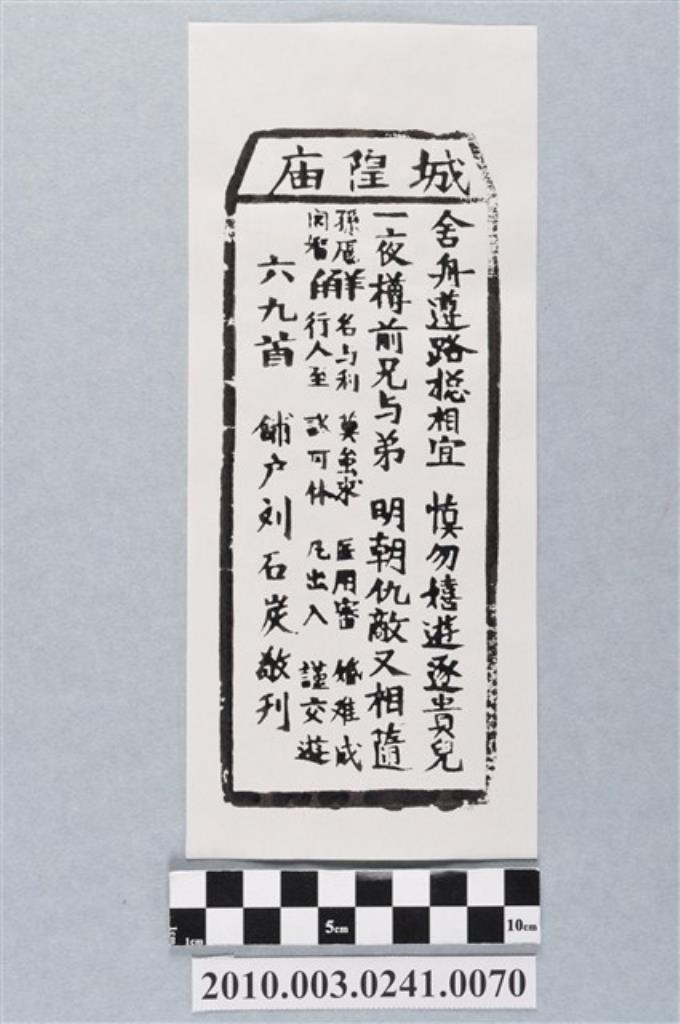 城隍庙
舍舟遵路捴相宜 慎勿嬉遊逐貴兒
一夜樽前兄与弟 明朝仇敵又相隨
孫龐 名与利 莫求 医用審 婚难成
智 行人至 訟可休 凡出入 謹交遊
六九首 鋪户刘石炭敬刊
1cm 5cm 10cm
2010.003.0241.0070